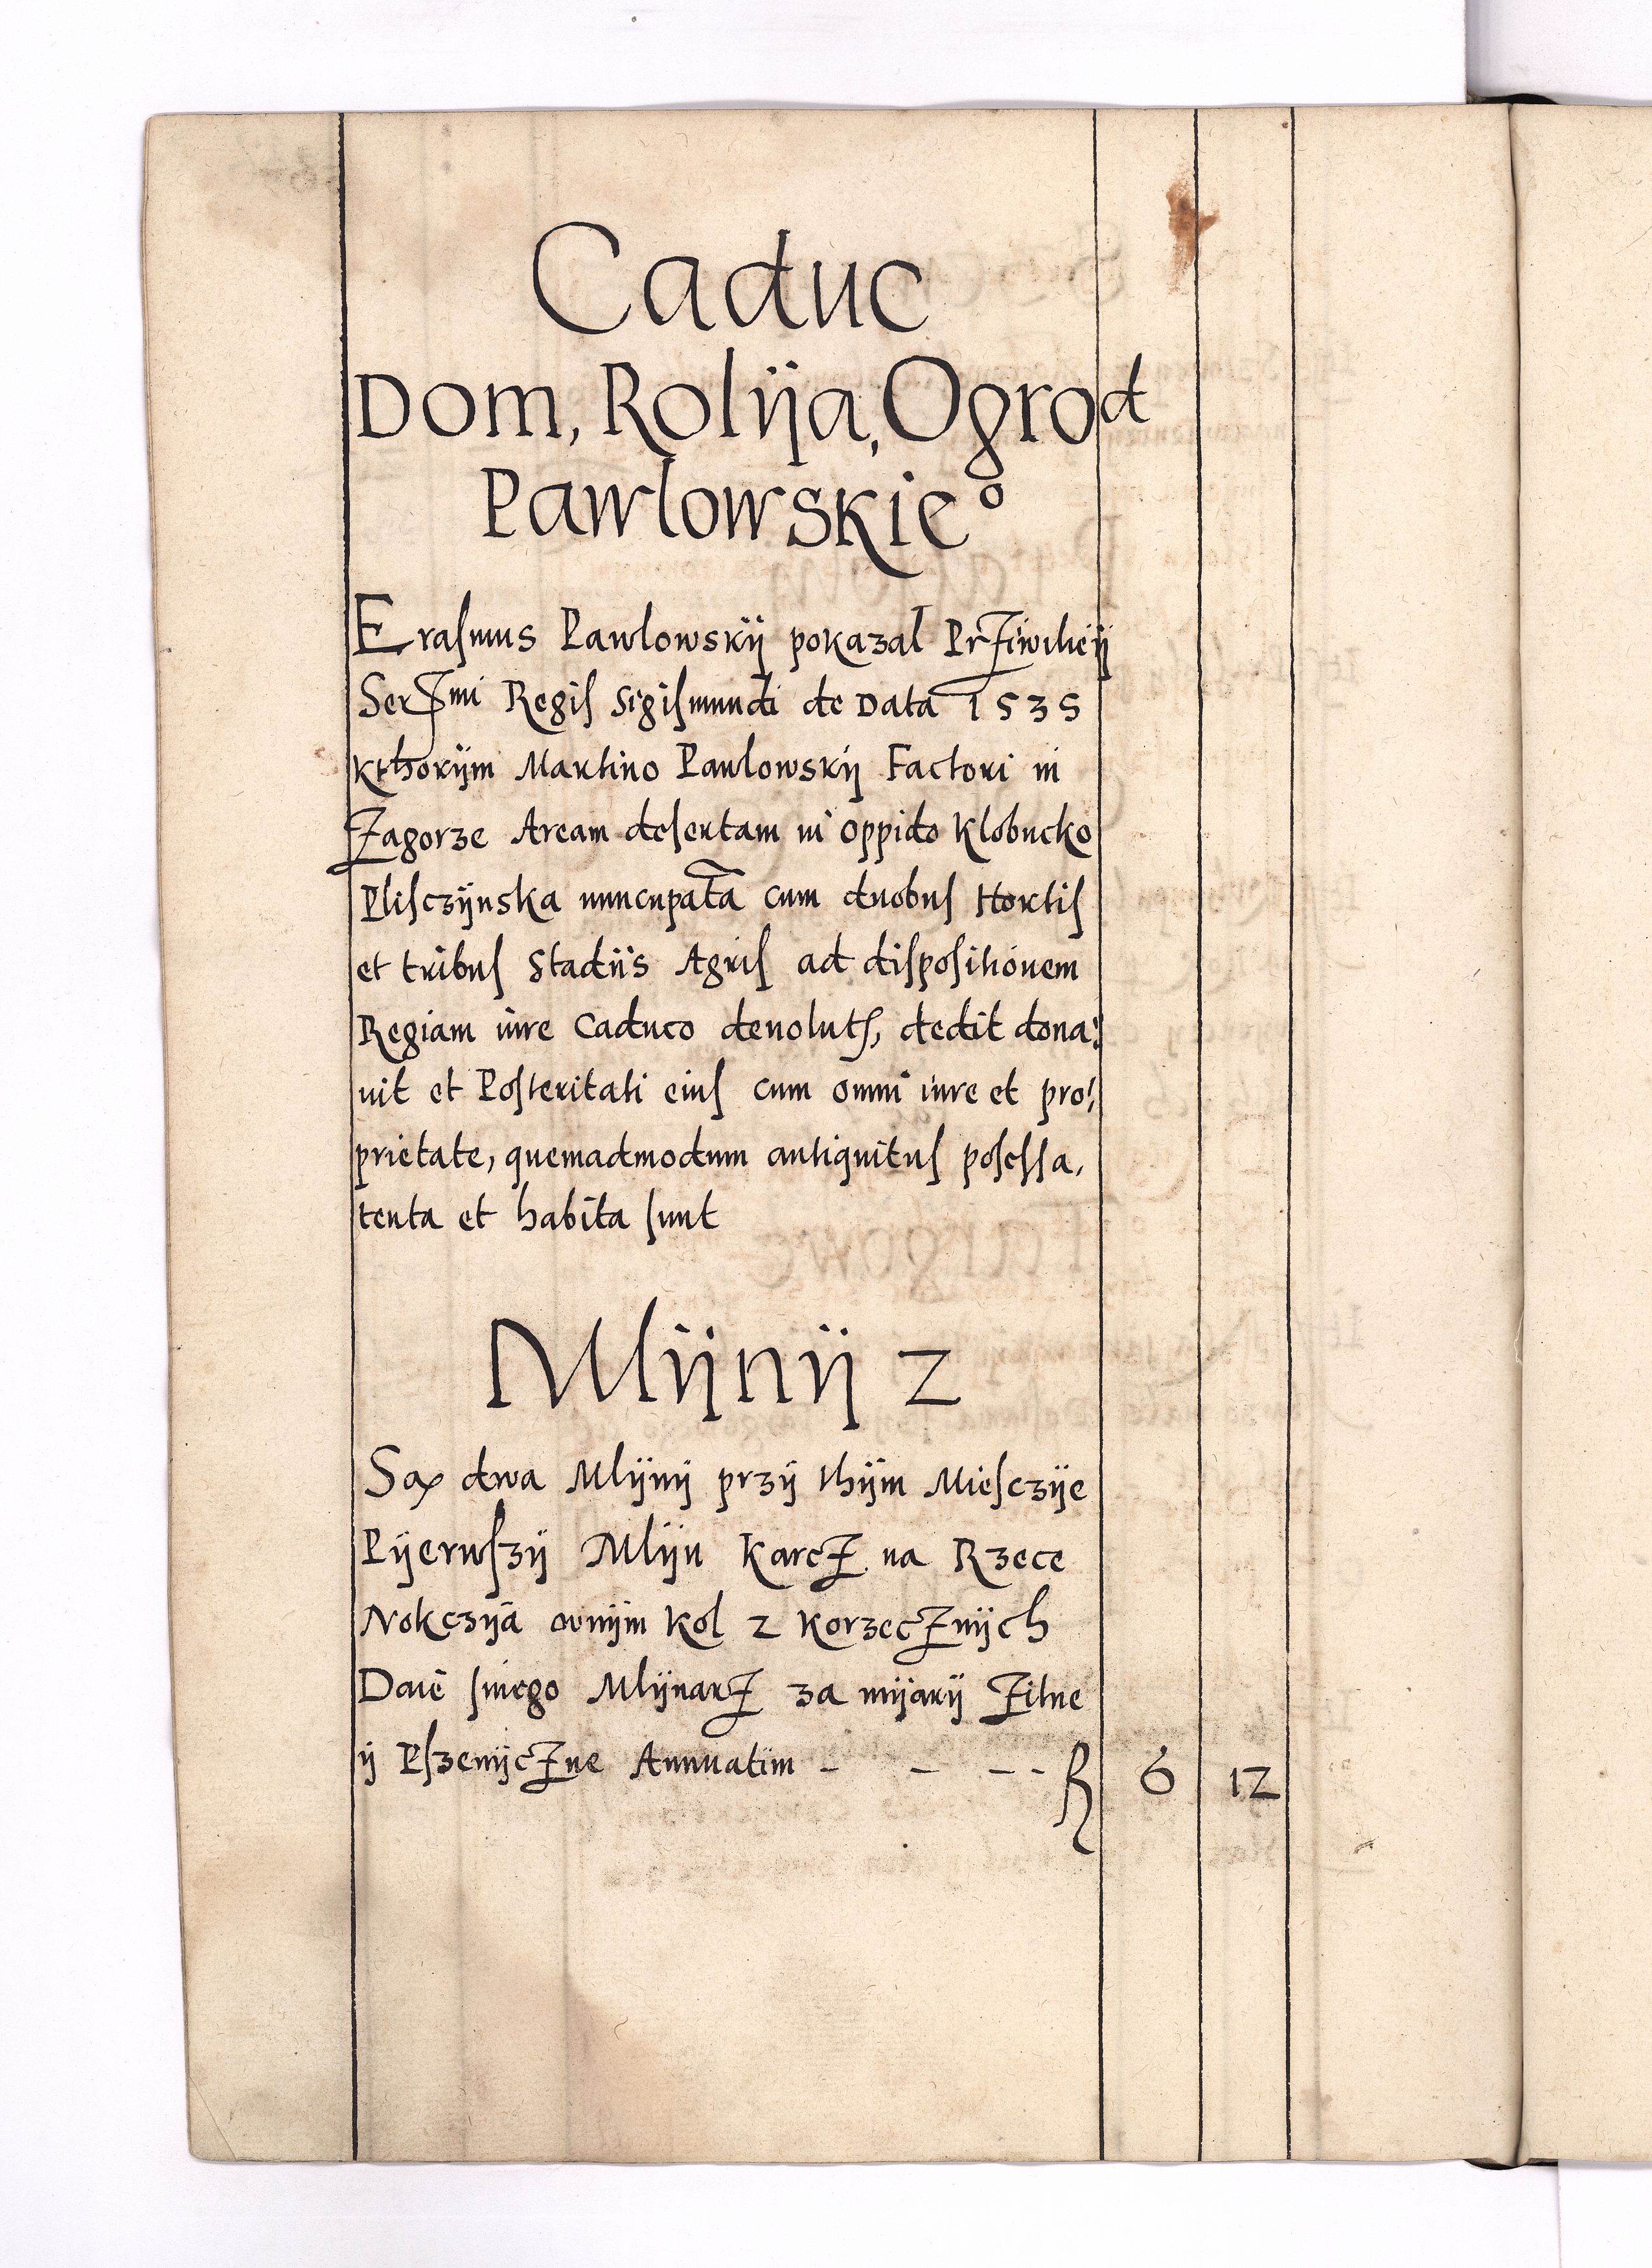 Caduc
Dom, Rolÿa, Ogrod
Pawlowskie°
Erasmus Pawlowskÿ pokazal Przÿwileÿ
Serssmi Regis Sigismundi de Data 1535
kthorÿm Martino Pawlowskÿ Factori in
Zagorze Aream desertam in oppido Klobucko
Plisczÿnska nuncupatã cum duobus Hortis
et tribus Stadiis Agris ad dispositionem
Regiam iure Caduco deuolut, dedit dona:
uit et Posteritati eius cum omni iure et pro:
prietate, quemadmodum antiquitus posessa,
tenta et habita sunt
Mlÿnÿ 2
Są dwa Mlÿnÿ przÿ thÿm Miesczÿe
Pÿerwszÿ Mlÿn Karcz na Rzece
Nokczÿa wnÿm kol 2 korzecznÿch
Daie sniego Mlÿnarz za mÿarÿ Zitne
ÿ Pszenÿczne Annuatim - - - - R 6 12